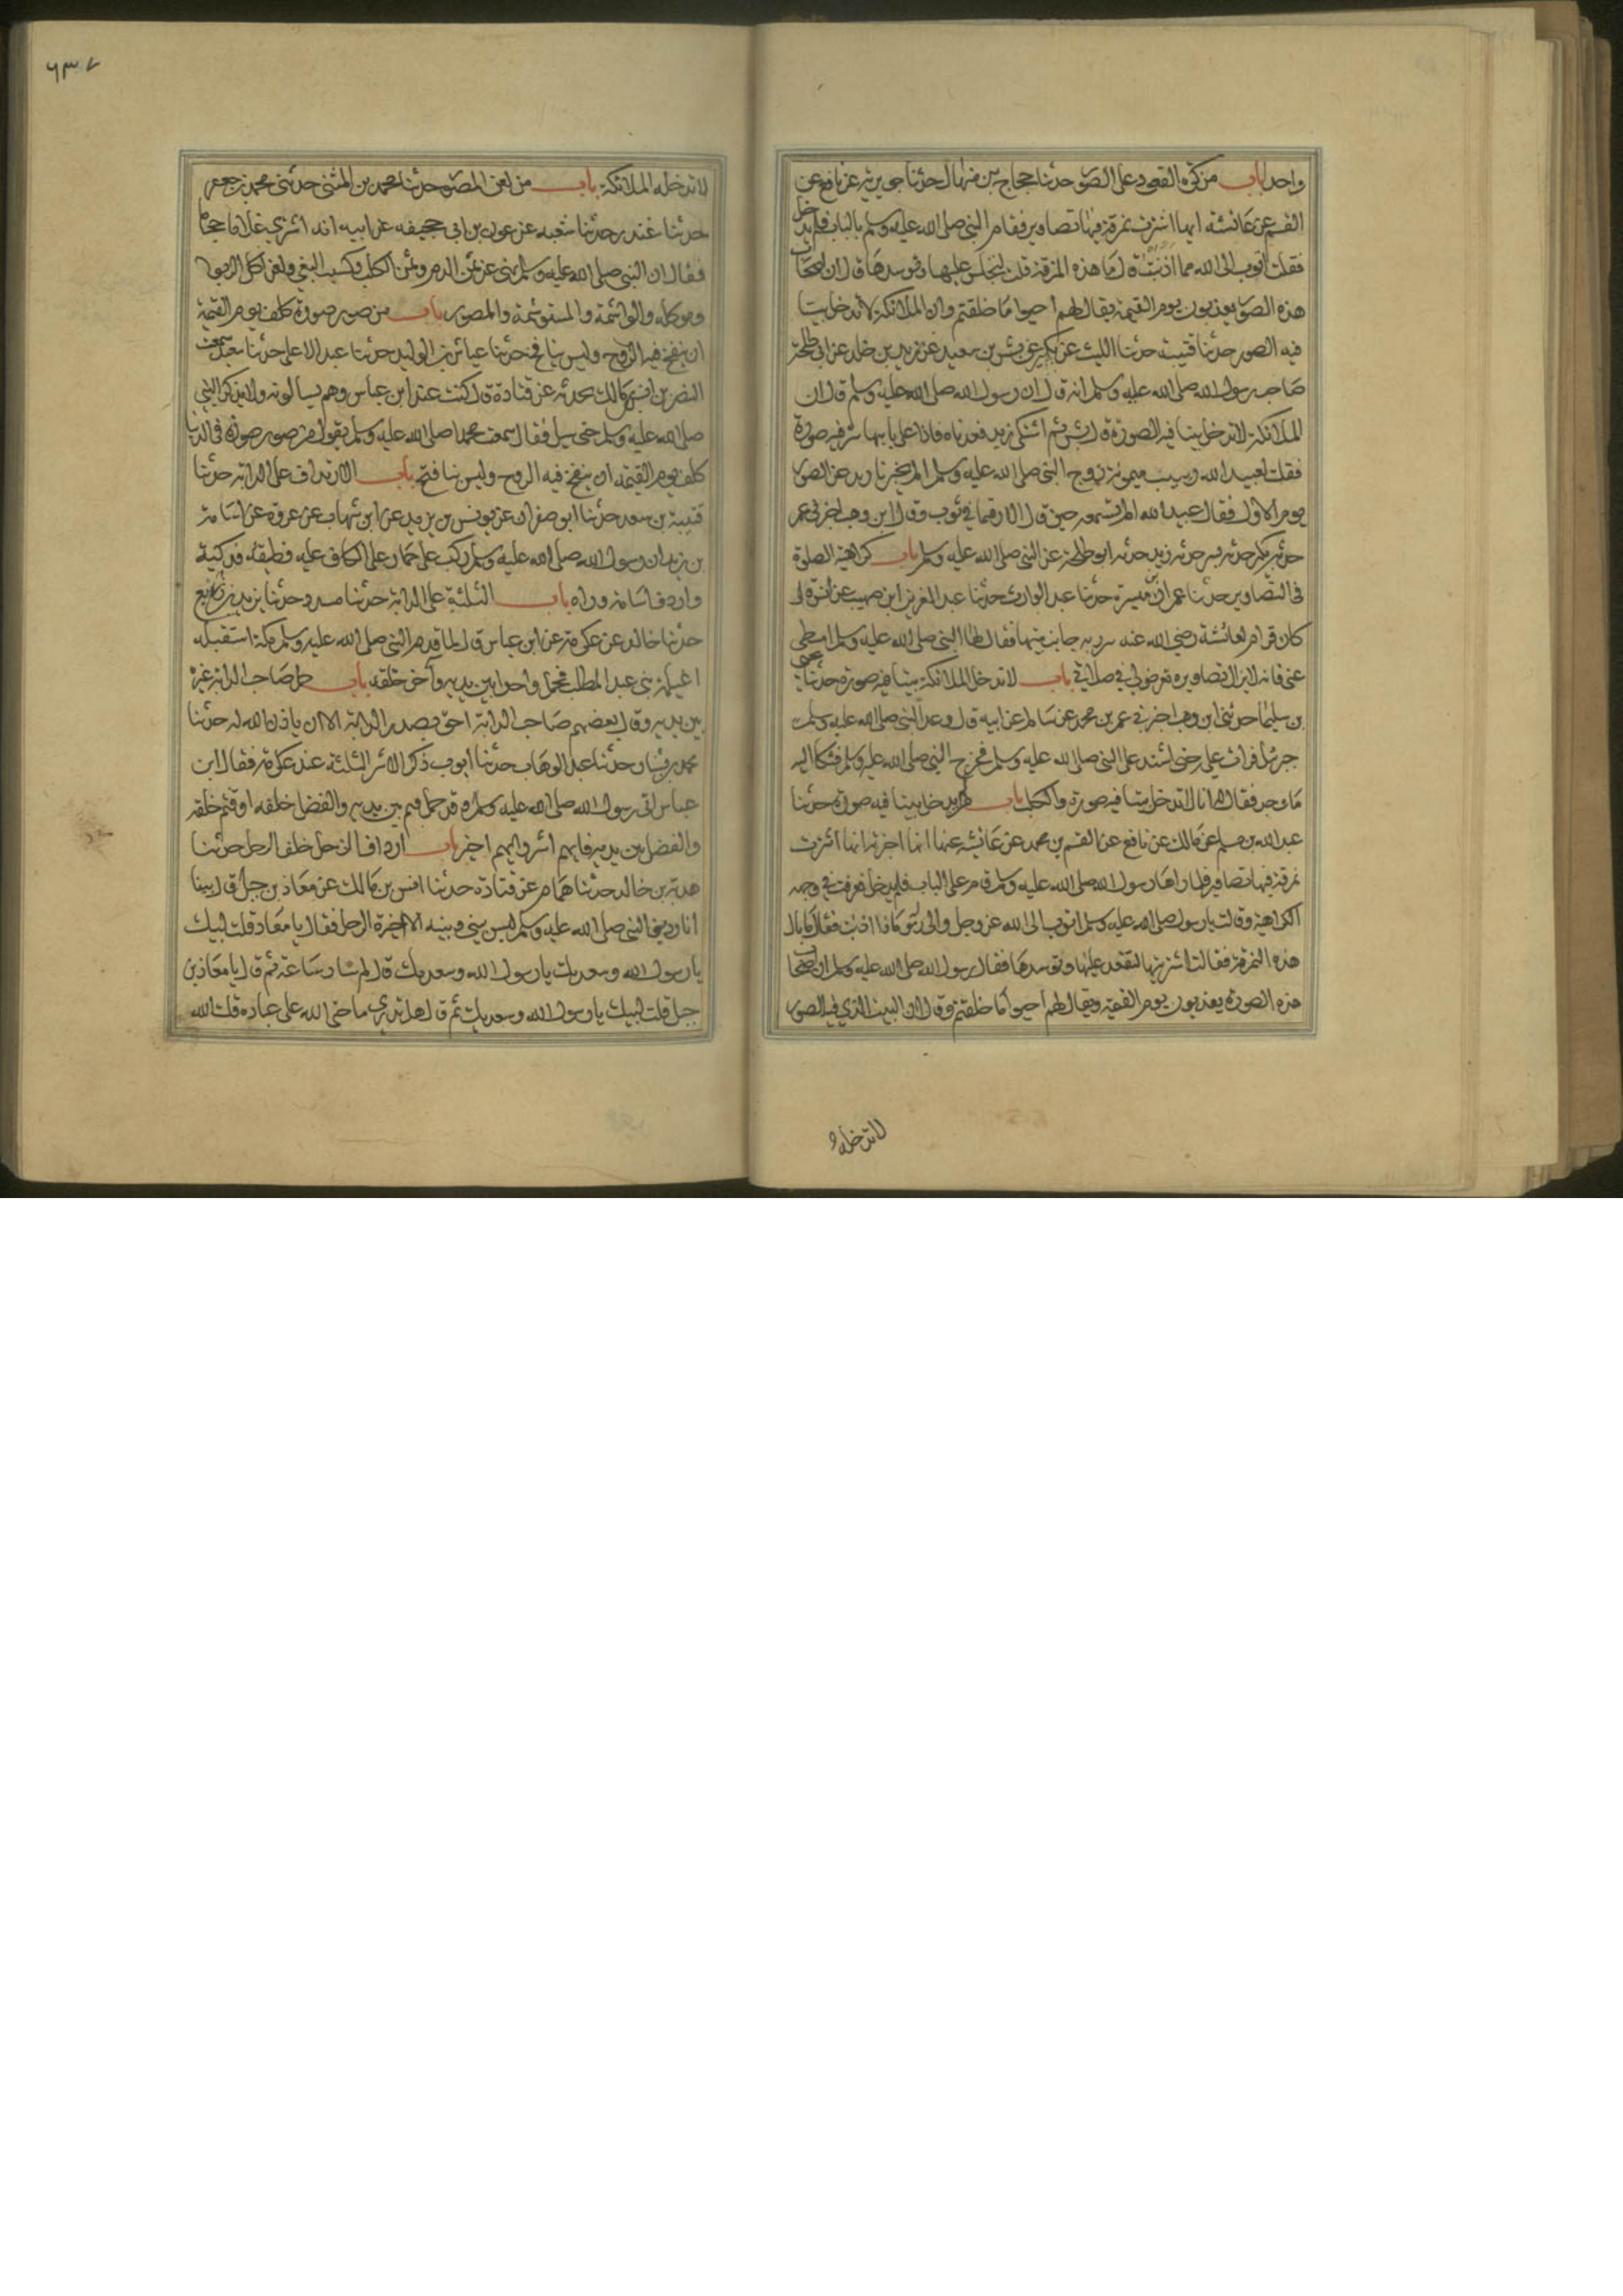 واحد باب من كره القعود على الصور حدثنا حجاج بن منهال حدثنا جويرية عن نافع عن
القسم عن عائشة انها اشترت نمرقة فيها تصاوير فقام النبي صلى الله عليه وسلم بالباب فلم يدخل
فقلت اتوب الى الله مما اذنبت قال ما هذه النمرقة قلت لتجلس عليها وتوسدها قال ان اصحاب
هذه الصور يعذبون يوم القيمة يقال لهم احيوا ما خلقتم وان الملائكة لا تدخل بيتا
فيه الصور حدثنا قتيبة حدثنا الليث عن بكير عن بسر بن سعيد عن زيد بن خالد عن ابي طلحة
صاحب رسول الله صلى الله عليه وسلم انه قال ان رسول الله صلى الله عليه وسلم قال ان
الملائكة لا تدخل بيتا فيه الصورة قال بسر ثم اشتكى زيد فعدناه فاذا على بابه ستر فيه صورة
فقلت لعبيد الله ربيب ميمونة زوج النبي صلى الله عليه وسلم الم يخبرنا زيد عن الصور
يوم الاول فقال عبيد الله الم تسمعه حين قال الا رقما في ثوب وقال ابن وهب اخبرني عمر
حدثه بكير حدثه بسر حدثه زيد حدثه ابو طلحة عن النبي صلى الله عليه وسلم باب كراهية الصلوة
في التصاوير حدثنا عمران بن ميسرة حدثنا عبد الوارث حدثنا عبد العزيز ابن صهيب عن انس قال
كان قرام لعائشة رضي الله عنه سترت به جانب بيتها فقال لها النبي صلى الله عليه وسلم اميطي
عني فانه لا تزال تصاويره تعرض لي في صلاتي باب لا تدخل الملائكة بيتا فيه صورة حدثنا يحيى
بن سليمان حدثني ابن وهب اخبرني عمر بن محمد عن سالم عن ابيه قال وعد النبي صلى الله عليه وسلم
جبرئل فراث عليه حتى اشتد على النبي صلى الله عليه وسلم فخرج النبي صلى الله عليه وسلم فشكا اليه
ما وجد فقال له انا لا ندخل بيتا فيه صورة ولا كلب باب من لم يدخل بيتا فيه صورة حدثنا
عبد الله بن مسلم عن مالك عن نافع عن القسم بن محمد عن عائشة عنها انها اخبرته انها اشترت
نمرقة فيها تصاوير فلما راها رسول الله صلى الله عليه وسلم قام على الباب فلم يدخل فعرفت في وجهه
الكراهية وقالت يا رسول صلى الله عليه وسلم اتوب الى الله عز وجل والى رسوله ماذا اذنبت فقال ما بال
هذه النمرقة فقالت اشتريتها لتقعد عليها وتوسدها فقال رسول الله صلى الله عليه وسلم ان اصحاب
هذه الصورة يعذبون يوم القيمة ويقال لهم احيوا ما خلقتم وقال ان البيت الذي فيه الصور
لا تدخله
٦٣٧
لا تدخله الملائكة باب من لعن المصور حدثنا محمد بن المثنى حدثني محمد بن جعفر
حدثنا غندر حدثنا شعبة عن عون بن ابي جحيفه عن ابيه انه اشترى غلاما حجاما
فقال ان النبي صلى الله عليه وسلم نهى عن ثمن الدم وثمن الكلب وكسب البغي ولعن اكل الربوا
وموكله والواشمة والمستوشمة والمصور باب من صور صورة كلف يوم القيمة
ان ينفخ فيه الروح وليس بنافخ حدثنا عياش بن الوليد حدثنا عبد الاعلى حدثنا سعيد سمعت
النضر بن انس بن مالك يحدثه عن قتادة قال كنت عند ابن عباس وهم يسالونه ولا يذكر النبي
صلى الله عليه وسلم حتى سيل فقال سمعت محمدا صلى الله عليه وسلم يقول من صور صورة في الدنيا
كلف يوم القيمة ان ينفخ فيه الروح وليس بنافخ باب الارتداف على الدابة حدثنا
قتيبة بن سعد حدثنا ابو صفوان عن يونس بن يزيد عن ابن شهاب عن عروة عن اسامة
بن زيد ان رسول الله صلى الله عليه وسلم ركب على حمار على اكاف عليه قطيفة فدكية
واردف اسامة وراه باب الثلثة على الدابة حدثنا مسدد حدثنا يزيد بن زريع
حدثنا خالد عن عكرمة عن ابن عباس قال لما قدم النبي صلى الله عليه وسلم مكة استقبله
اغيلمة بني عبد المطلب فحمل واحدا بين يديه وآخر خلفه باب حمل صاحب الدابة غيره
بين يديه وقال بعضهم صاحب الدابة احق بصدر الدابة الا ان ياذن الله له حدثنا
محمد بن بشار حدثنا عبد الوهاب حدثنا ايوب ذكر الاشر الثلثة عند عكرمة فقال ابن
عباس اتى رسول الله صلى الله عليه وسلم وقد حمل قثم بين يديه والفضل خلفه او قثم خلفه
والفضل بين يديه فايهم اشر وايهم اخير باب ارداف الرجل خلف الرجل حدثنا
هدبة بن خالد حدثنا همام عن قتادة حدثنا انس بن مالك عن معاذ بن جبل قال بينا
انا رديف النبي صلى الله عليه وسلم ليس بيني وبينه الا اخرة الرحل فقال يا معاذ قلت لبيك
يا رسول الله وسعديك يا رسول الله وسعديك قال ثم سار ساعة ثم قال يا معاذ بن
جبل قلت لبيك يا رسول الله وسعديك ثم قال هل تدري ما حق الله على عباده قلت الله